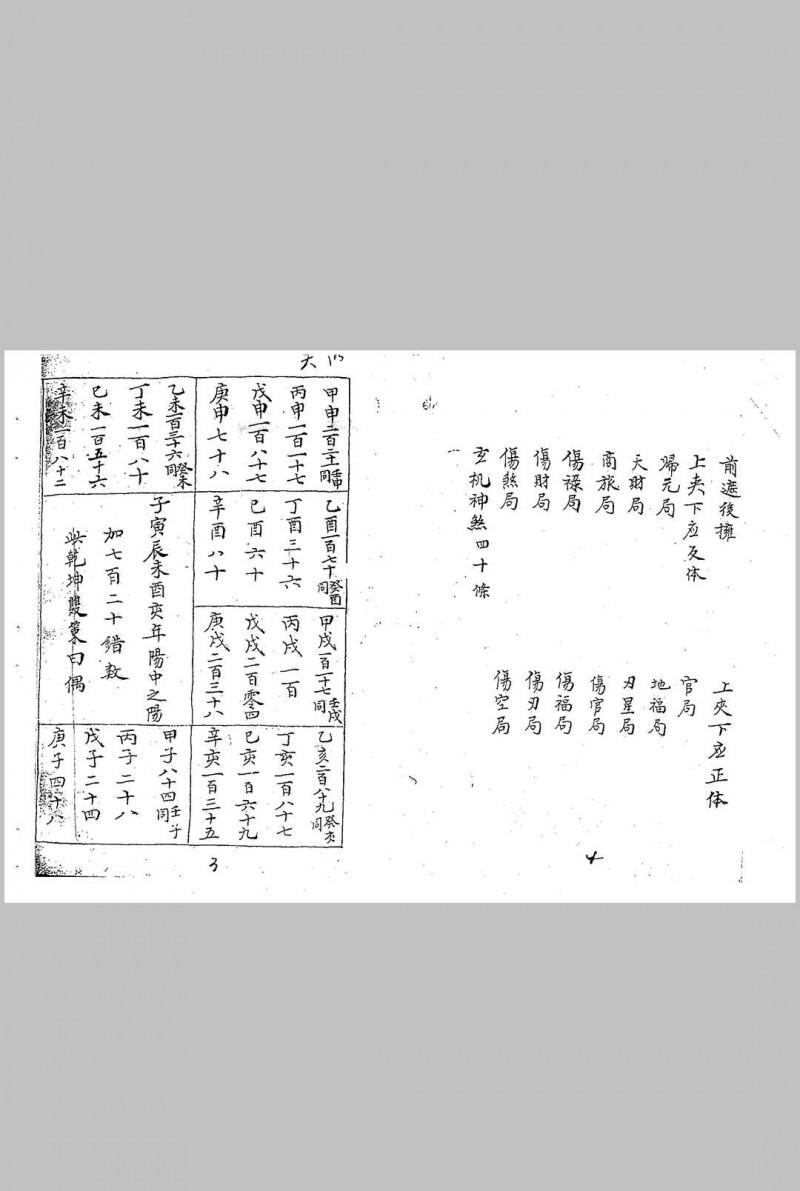 前遮後擁
上夾下应反体
歸元局
天財局
商旅局
傷祿局
傷財局
傷煞局
玄机神煞四十條
上夾下应正体
官局
地福局
刃星局
傷官局
傷福局
傷刃局
傷空局
4
天
甲申二百三十一壬申同
丙申一百一十七
戊申一百八十七
庚申七十八
乙未一百三十六癸未同
丁未一百八十
己未一百五十六
辛未一百八十二
乙酉一百七十癸酉同
丁酉三十六
己酉六十
辛酉八十
子寅辰未酉亥年陽中之陽
加七百二十錯数
此乾坤雙策曰偶
甲戌一百一十七壬戌同
丙戌一百
戊戌二百零四
庚戌二百三十八
乙亥二百八十九癸亥同
丁亥一百八十七
己亥一百六十九
辛亥一百三十五
甲子八十四壬子同
丙子二十八
戊子二十四
庚子四十八
3